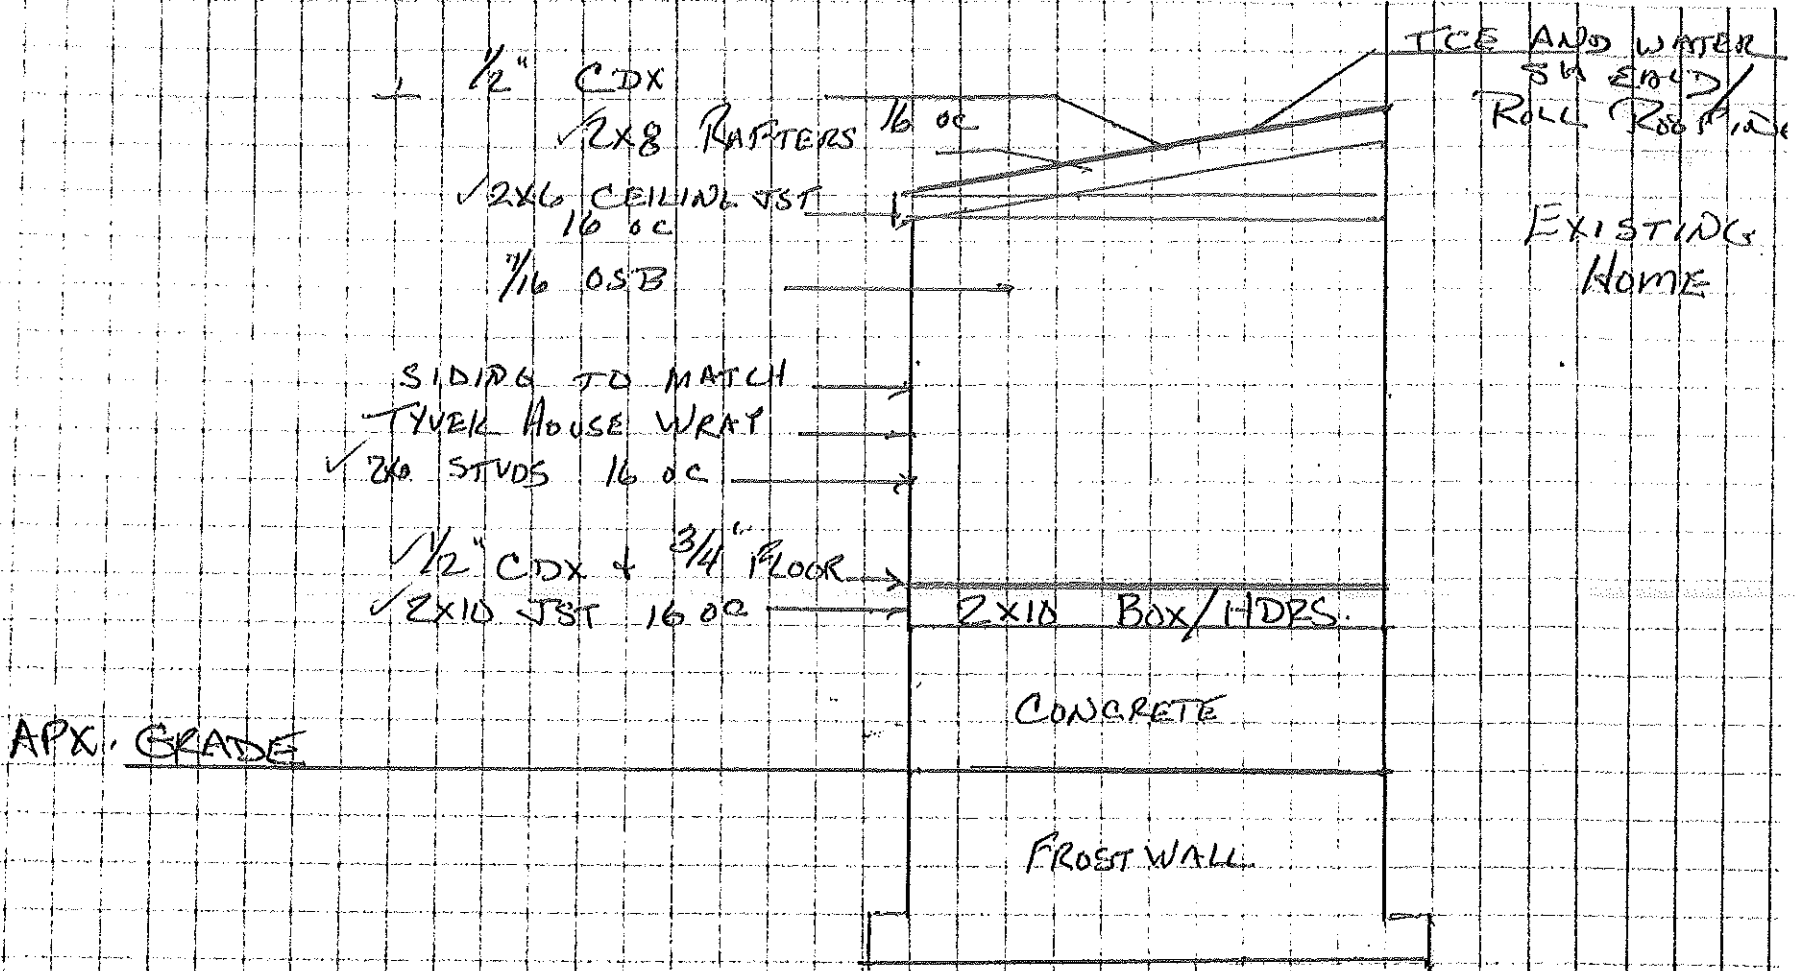 1/2" CDX
✓2X8 RAFTERS 16 OC
✓2X6 CEILING JST
16 OC
7/16 OSB
SIDING TO MATCH
TYVEK HOUSE WRAP
✓2X6 STUDS 16 OC
✓1/2" CDX + 3/4" FLOOR
✓2X10 JST 16 OC
APX. GRADE
ICE AND WATER
SHEALD/
ROLL ROOFING
EXISTING
HOME
2X10 BOX/HDRS.
CONCRETE
FROST WALL